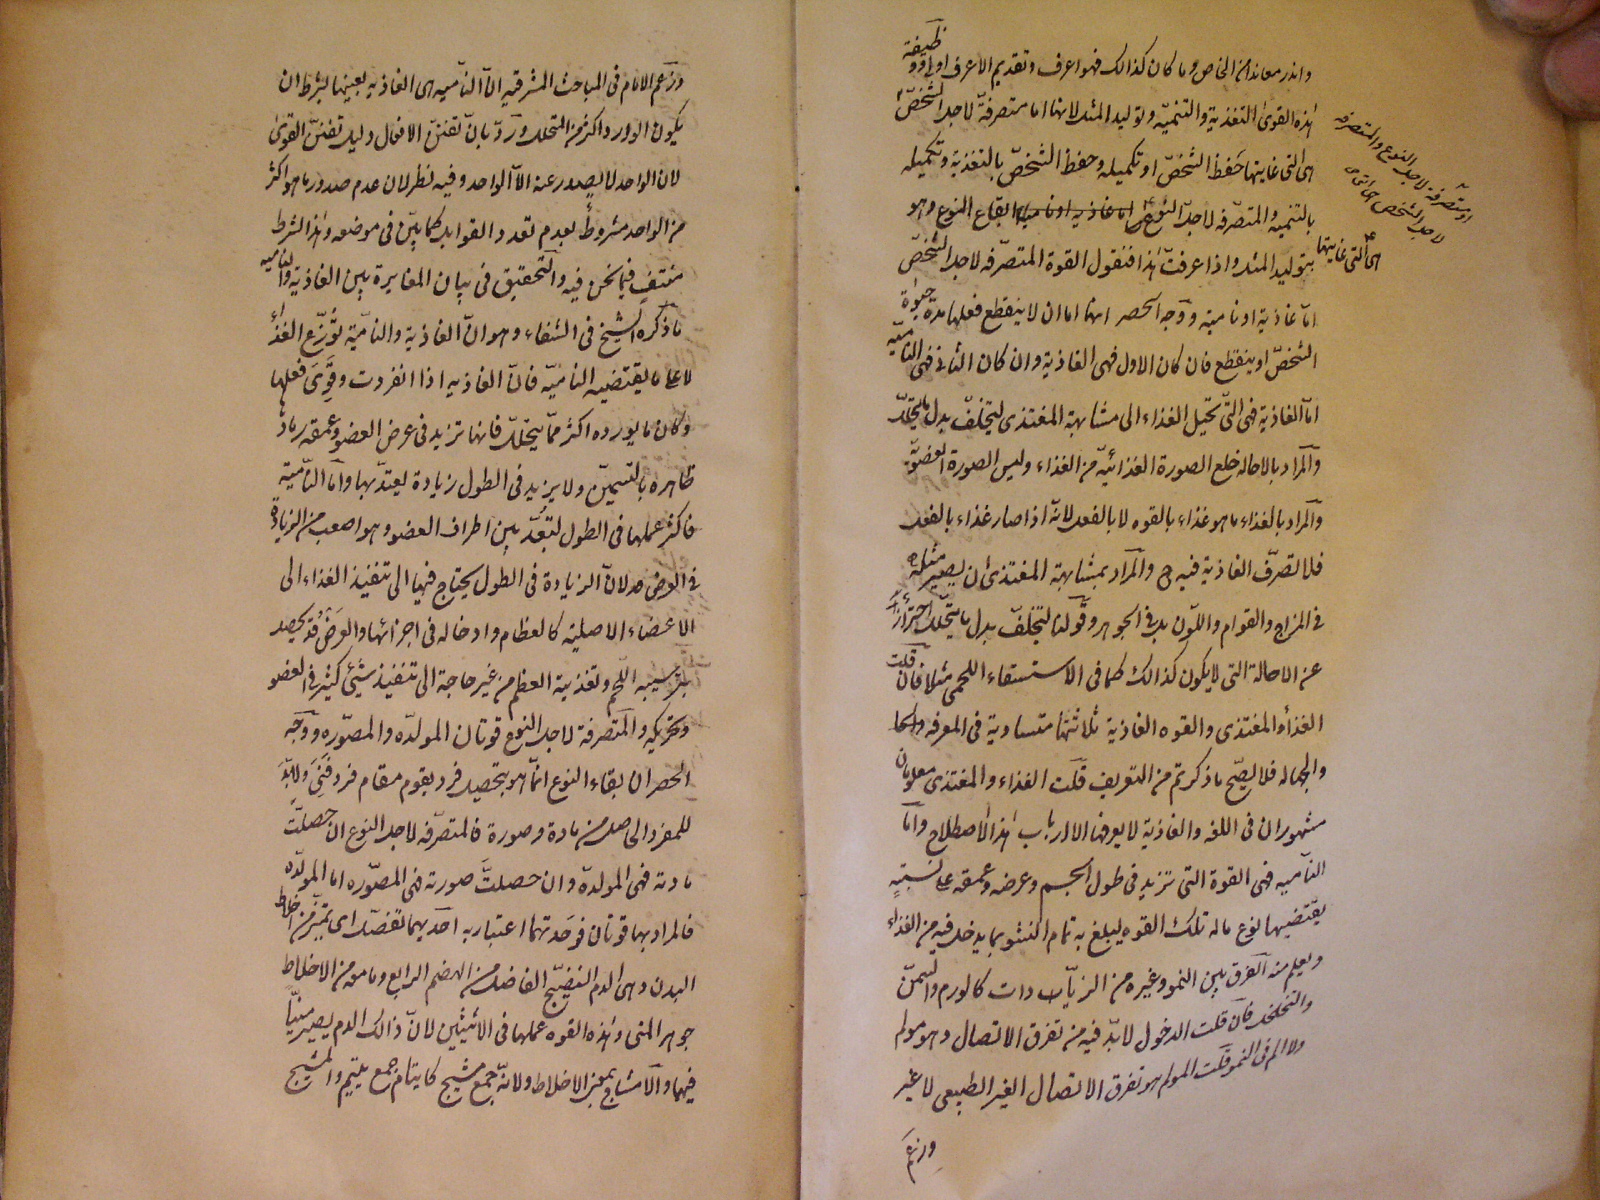 وانذر معاندات الخاص وما كان كذالك فهو اعرف وتقديم الاعرف اولى ووظيفة
هذه القوى التغذية والتنمية وتوليد المثل لانها اما متصرفة لاجل الشخص
هى التى غايتها حفظ الشخص او تكميله وحفظ الشخص بالتغذية وتكميله
بالتنمية والمتصرفه لاجل النوع ابقاع النوع وهو
بتوليد المثل واذا عرفت هذا فنقول القوة المتصرفه لاجل الشخص
اما غاذية او نامية ووجه الحصر انها اما ان لا ينقطع فعلها مدة حيوة
الشخص او ينقطع فان كان الاول فهى الغاذية وان كان الثانى فهى النامية
اما الغاذية فهى التى تحيل الغذاء الى مشابهة المغتذى ليخلف بدل ما يتحلل
والمراد بالاحاله خلع الصورة الغذائية من الغذاء ولبس الصورة العضوية
والمراد بالغذاء ما هو غذاء بالقوه لا بالفعل لانه اذا صار غذاء بالفعل
فلا تصرف الغاذية فيه ح والمراد بمشابهة المغتذى ان يصير مثله
فى المزاج والقوام واللون بل فى الجوهر وقولنا لتخلف بدل ما يتحلل احترازا
عن الاحالة التى لا يكون كذالك كما فى الاستسقاء اللحمى مثلا فان قلت
الغذاء والمغتذى والقوه الغاذية ثلاثتها متساوية فى المعرفه
والجهاله فلا يصح ما ذكرتم من التعريف قلت الغذاء والمغتذى معلومان
مشهوران فى اللغه والغاذية لا يعرفها الا ارباب هذا الاصطلاح واما
الناميه فهى القوة التى تزيد فى طول الجسم وعرضه وعمقه على نسبة
يقتضيها نوع ماله تلك القوه ليبلغ به تمام النشو بما يدخل فيه من الغذاء
ويعلم منه الفرق بين النمو وغيره من الزيادات كالورم والسمن
والتخلخل فان قلت الدخول لا بد فيه من تفرق الاتصال وهو مولم
ولا الم فى النمو قلت المولم هو تفرق الاتصال الغير الطبيعى لا غير
وزعم
او متصرفة لاجل النوع والمتصرفه
لاجل الشخص
هى التى غايتها
وزعم الامام فى المباحث المشرقيه ان الناميه هى الغاذيه بعينها بشرط ان
يكون الوارد اكثر من المتحلل ورد بان تفنن الافعال دليل تفنن القوى
لان الواحد لا يصدر عنه الا الواحد وفيه نظر لان عدم صدور ما هو اكثر
من الواحد مشروط بعدم تعدد القوابل كما بين فى موضعه وهذا الشرط
منتف فيما نحن فيه والتحقيق فى بيان المغايرة بين الغاذية والناميه
ما ذكره الشيخ فى الشفاء وهو ان الغاذية والنامية توزع الغذاء
لا على ما يقتضيه النامية فان الغاذيه اذا انفردت وقوى فعلها
وكان ما يورده اكثر مما يتحلل فانها تزيد فى عرض العضو وعمقه زيادة
ظاهره بالتسمين ولا يزيد فى الطول زيادة يعتد بها واما النامية
فاكثر عملها فى الطول لتبعد بين اطراف العضو وهو اصعب من الزيادة
فى العرض لان الزيادة فى الطول يحتاج فيها الى تنفيذ الغذاء الى
الاعضاء الاصلية كالعظام وادخاله فى اجزائها والعرض قد يحصل
بتشبيه اللحم وتغذية العظم من غير حاجة الى تنفيذ شئى كثير فى العضو
وتحريكه والمتصرفة لاجل النوع قوتان المولده والمصوره ووجه
الحصر ان بقاء النوع انما هو بتحصيل فرد يقوم مقام فرد فنى ولا بد
للفرد الحاصل من مادة وصورة فالمتصرفه لاجل النوع ان حصلت
مادته فهى المولدة وان حصلت صورته فهى المصوره اما المولده
فالمراد بها قوتان فوحدتهما اعتباريه احديهما تفصل اى تميز من اخلاط
البدن وهى الدم النضيج الفاضل من الهضم الرابع وما هو من الاخلاط
جوهر المنى وهذه القوه عملها فى الانثيين لان ذالك الدم يصير منيا
فيها والامشاج بمعنى الاخلاط ولانه جمع مشيج كايتام جمع يتيم والمشيج